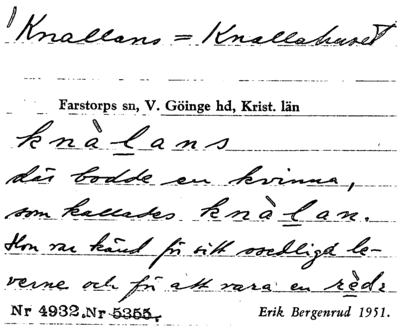 Knallans = Knallahuset
Farstorps sn, V. Göinge hd, Krist. län
knàlans
där bodde en kvinna,
som kallades knàlan.
Hon var känd för sitt osedliga le-
verne och för att vara en rèd:
Nr 4932. Nr 5355. Erik Bergenrud 1951.